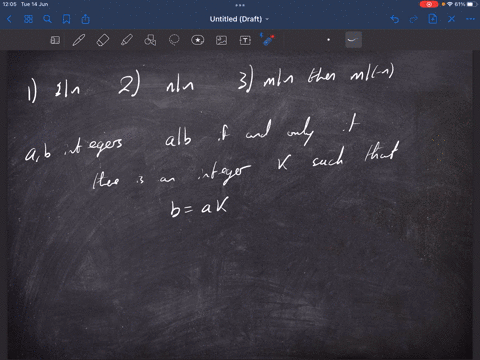 12:05 Tue 14 Jun
61%
Untitled (Draft)
1) 1|n 2) n|n 3) m|n then m|(-n)
a,b integers a|b if and only if
there is an integer K such that
b = aK